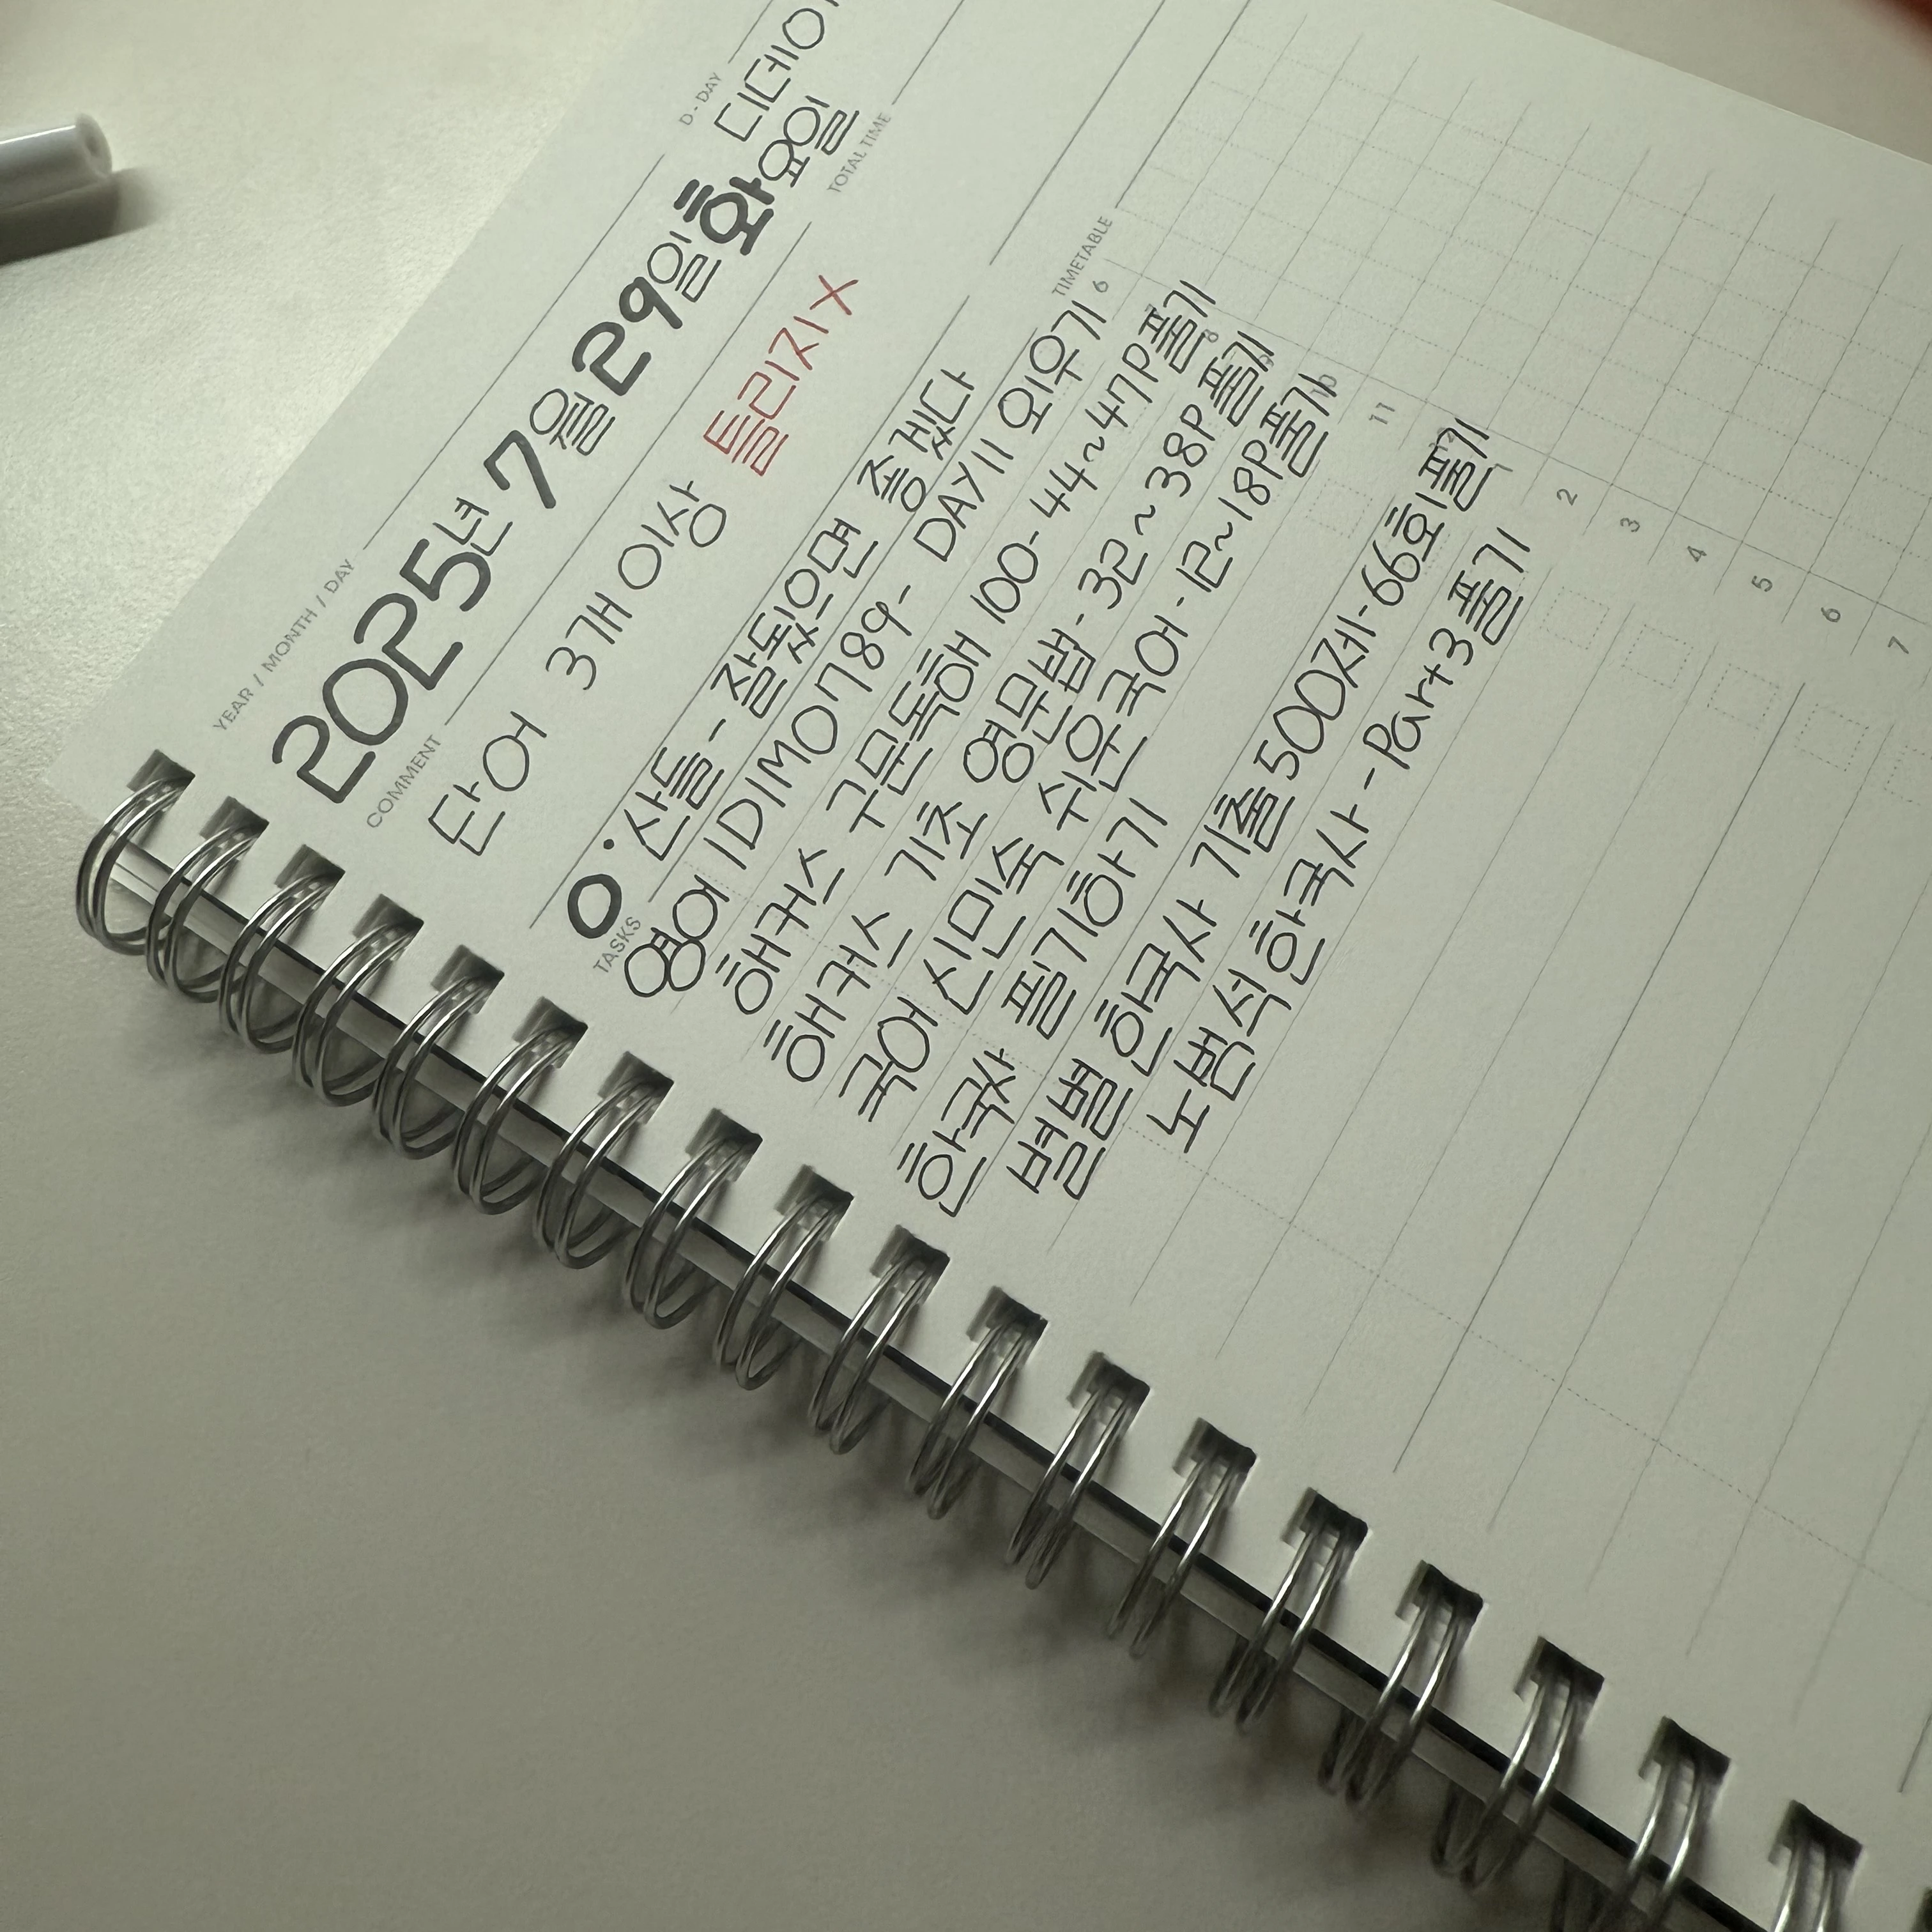 YEAR / MONTH / DAY
D - DAY
2025년 7월 29일 화요일
디데이
COMMENT
TOTAL TIME
단어 3개 이상 틀리지X
O· 산들 - 잘됬으면 좋겠다
TASKS
TIMETABLE
영어 1D1M0789 - DAY11 외우기
6
해커스 구문독해 100 - 44~47P 풀기
해커스 기초 영문법 - 32~38P 풀기
8
국어 신민숙 쉬운국어 - 12~18P 풀기
한국사 필기하기
10
별별 한국사 기출 500제 - 66회 풀기
11
노범석 한국사 - Part3 풀기
1
2
3
4
5
6
7